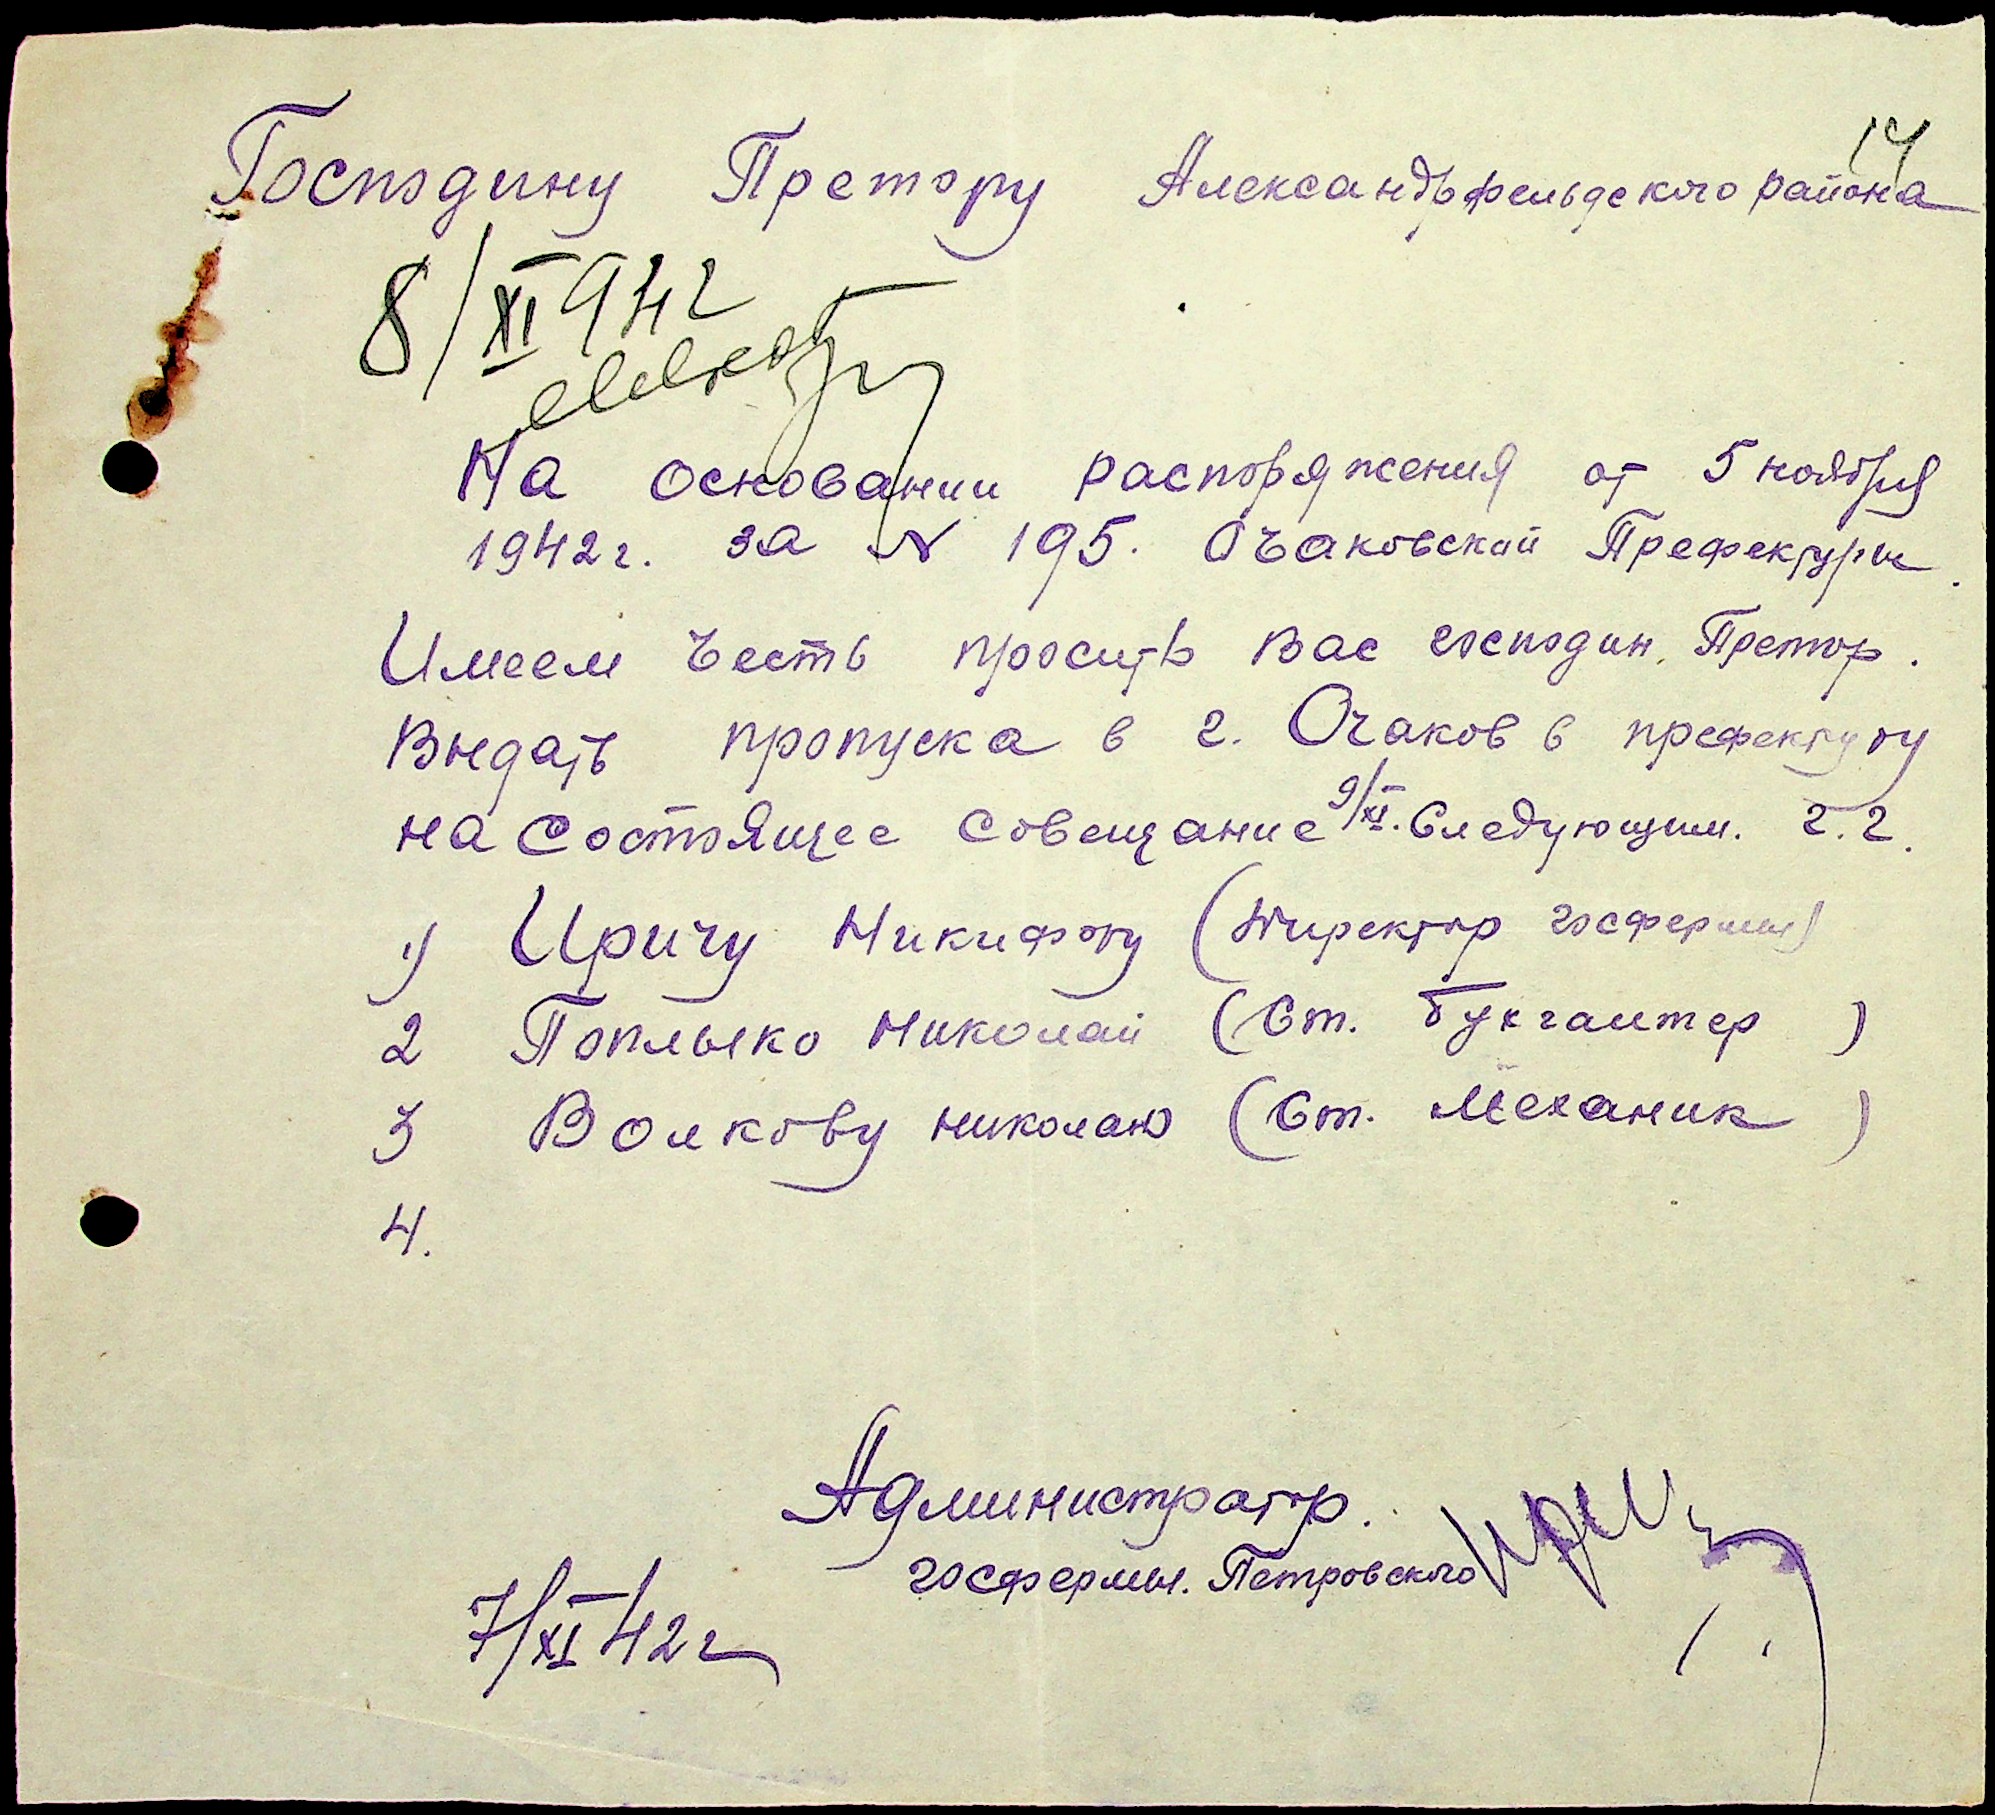 14
Господину Претору Александрфельдского района
8/XI 942
На основании распоряжения от 5 ноября
1942 г. за № 195. Очаковской Префектуры.
Имеем честь просить Вас господин Претор.
Выдать пропуска в г. Очаков в префектуру
на состоящее совещание 9/XI. Следующим. г.г.
1) Иричу Никифору (Директор госфермы)
2 Николай (Ст. бухгалтер)
3 Волкову Николаю (Ст. Механик)
4.
Администратор.
госфермы. Петровского
7/XI 42 г